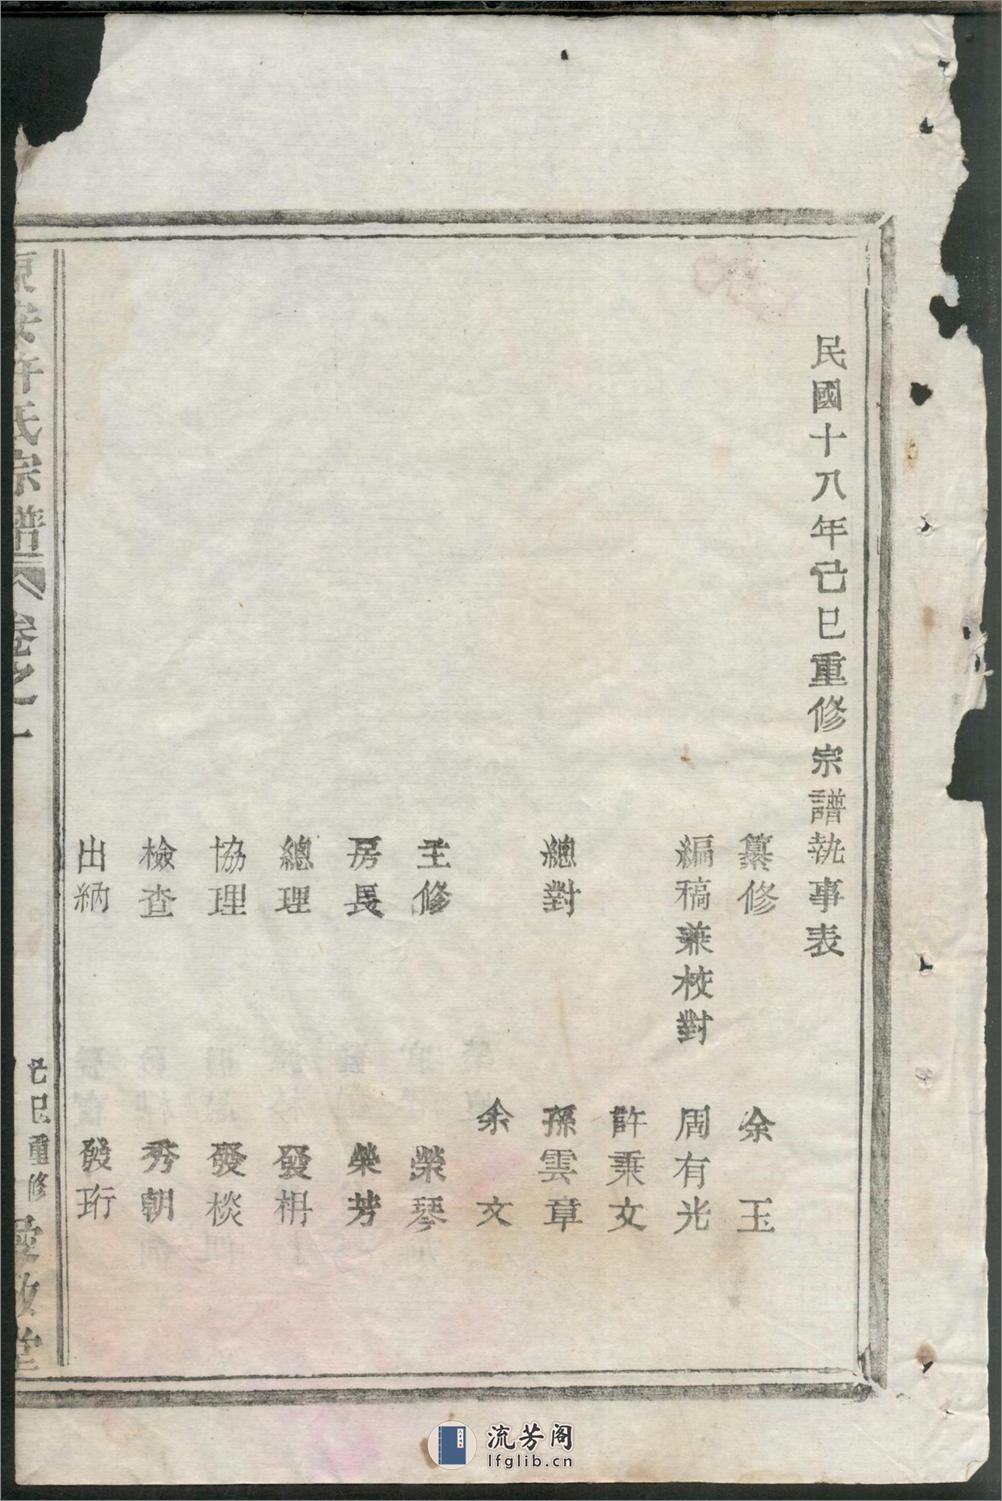 民國十八年己巳重修宗譜執事表
纂修 余玉
編稿兼校對 周有光
許秉文
總對 孫雲章
余文
主修 榮琴
房長 榮芳
總理 發枬
協理 發棪
檢查 秀朝
出納 發珩
東安許氏宗譜 卷之一
己巳重修 愛敬堂
流芳阁
lfglib.cn